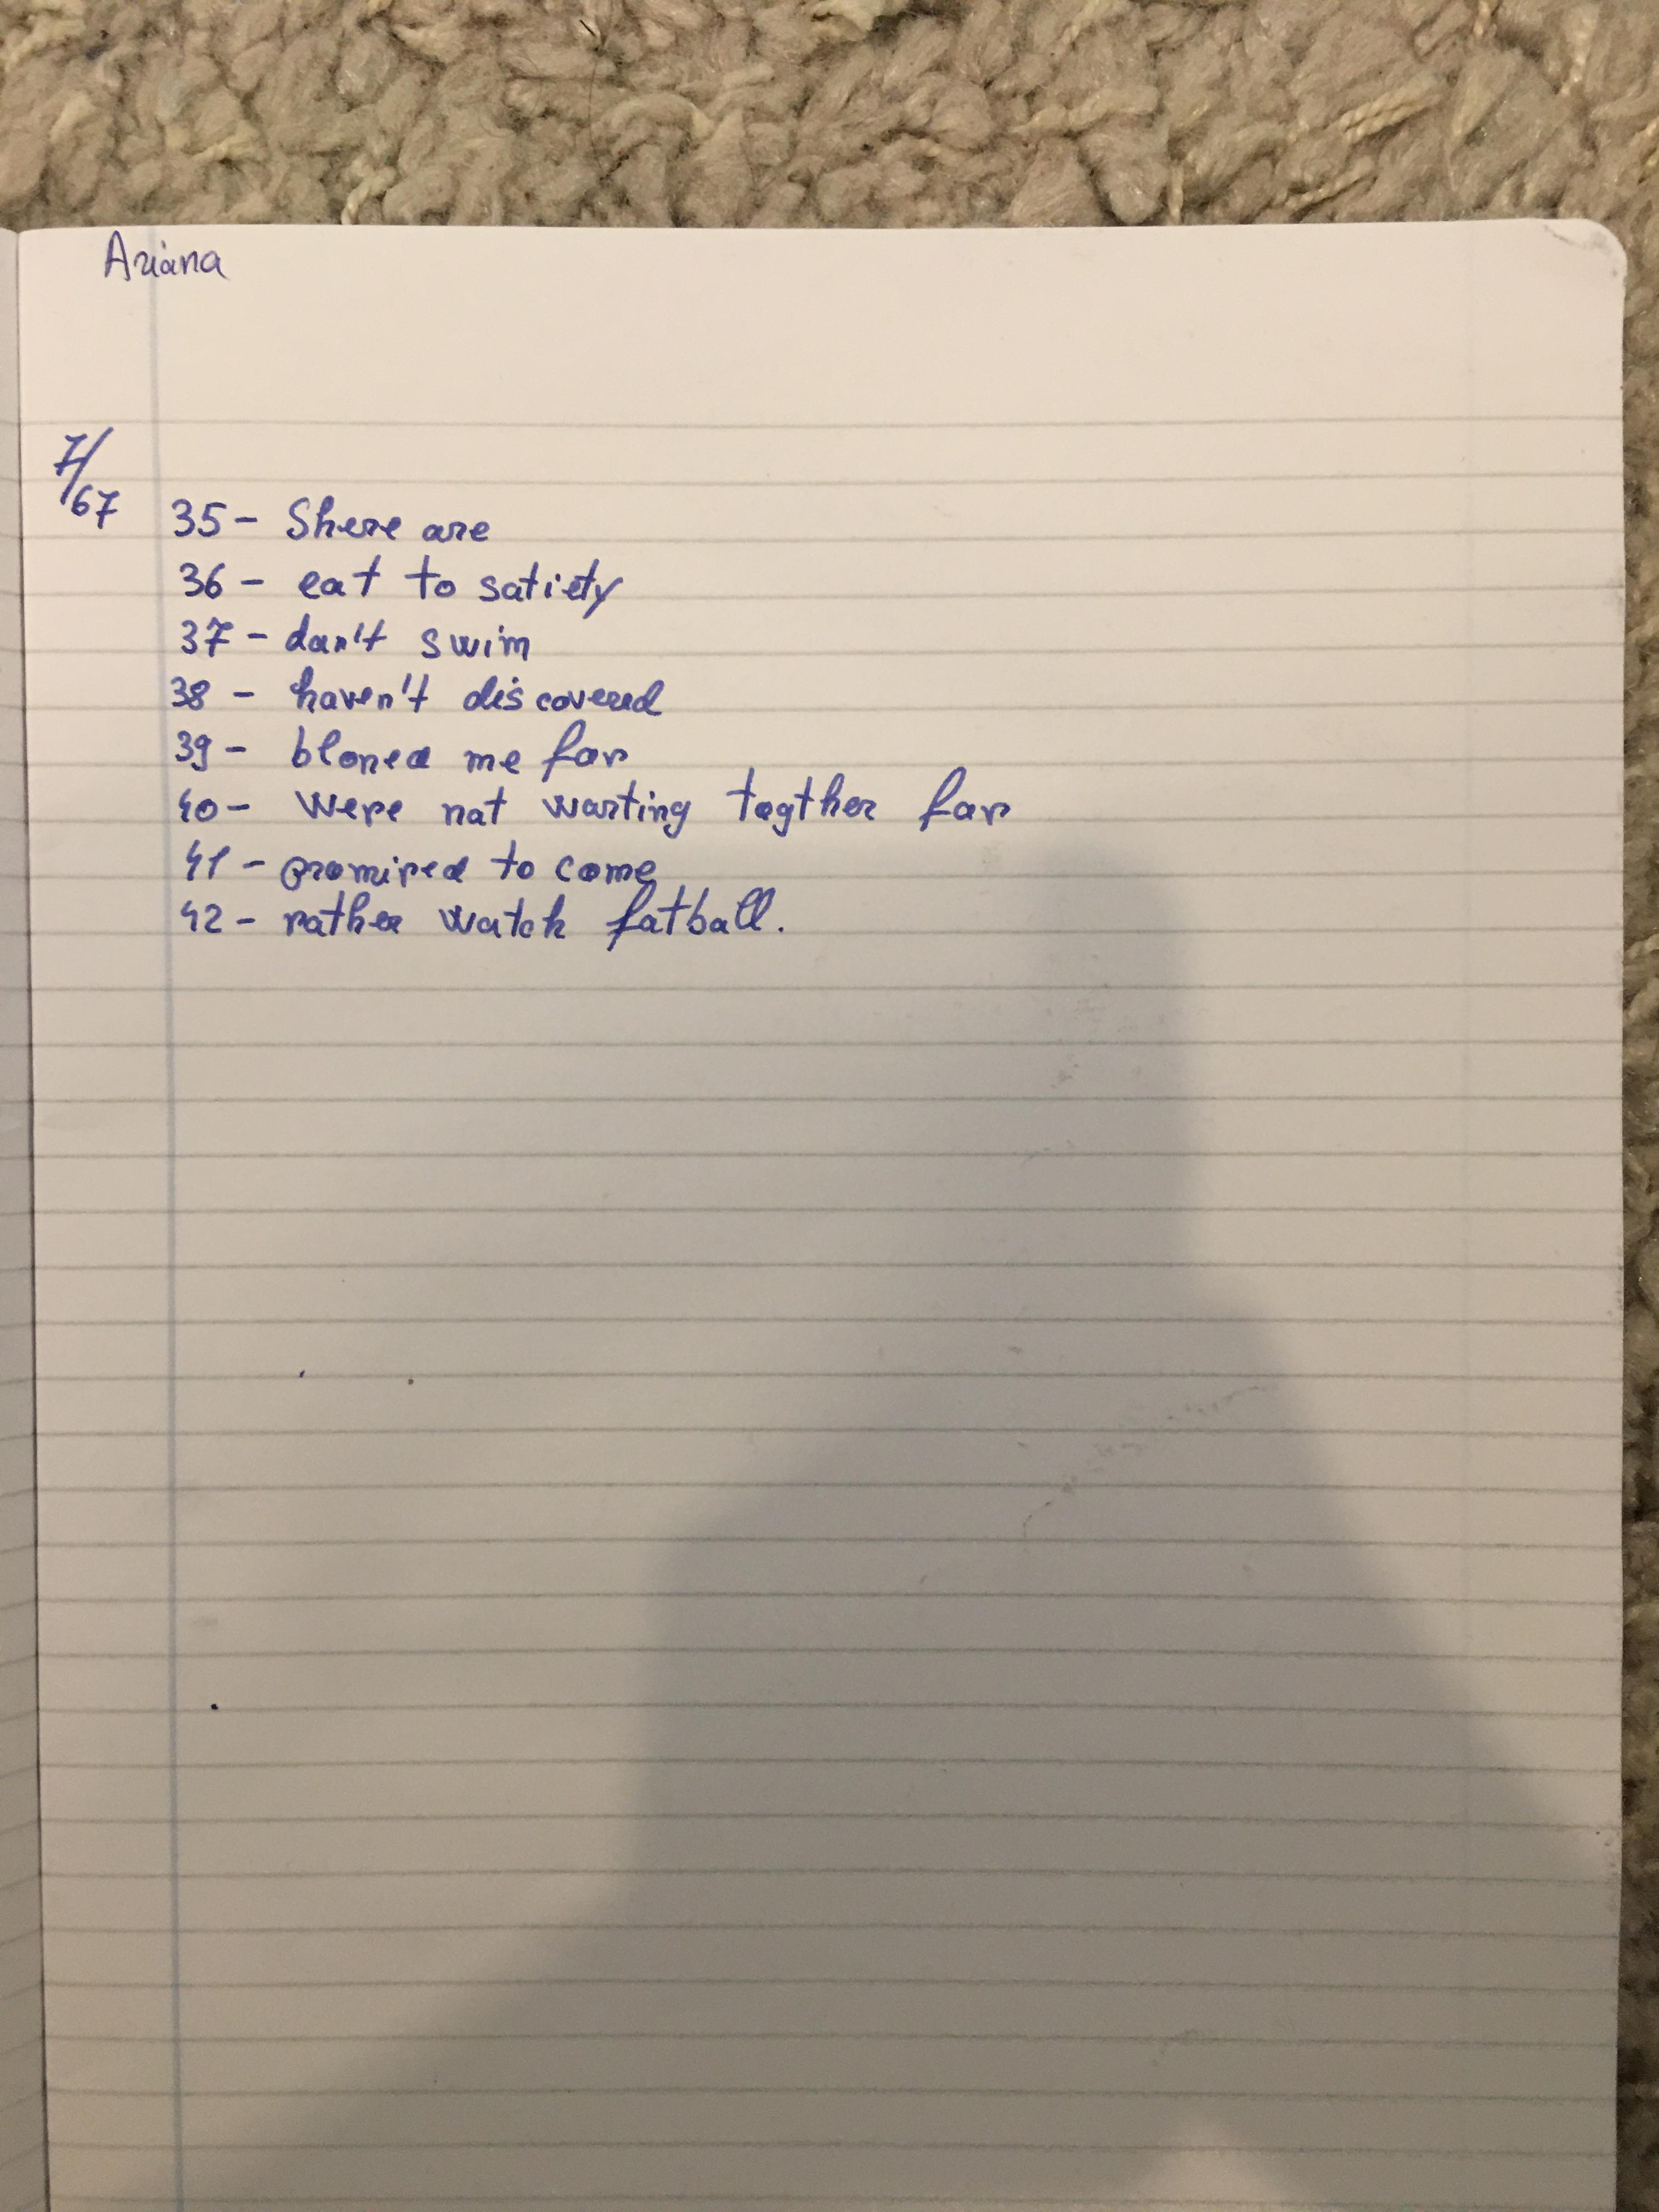 Ariana
7/67
35 - Shere are
36 - eat to satiety
37 - dan't swim
38 - haven't discovered
39 - bloned me far
40 - were nat warting togther far
41 - promired to come
42 - rather watch fatball.